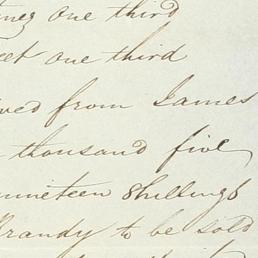 one third
one third
from James
thousand five
nineteen Shillings
Brandy to be sold